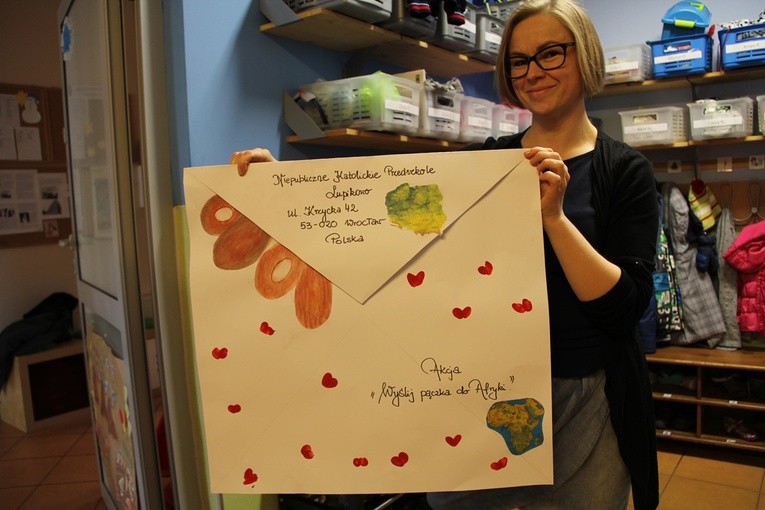 Niepubliczne Katolickie Przedszkole
Lupikowo
ul. Krzycka 42
53-020 Wrocław
Polska
Akcja
"Wyślij pączka do Afryki."